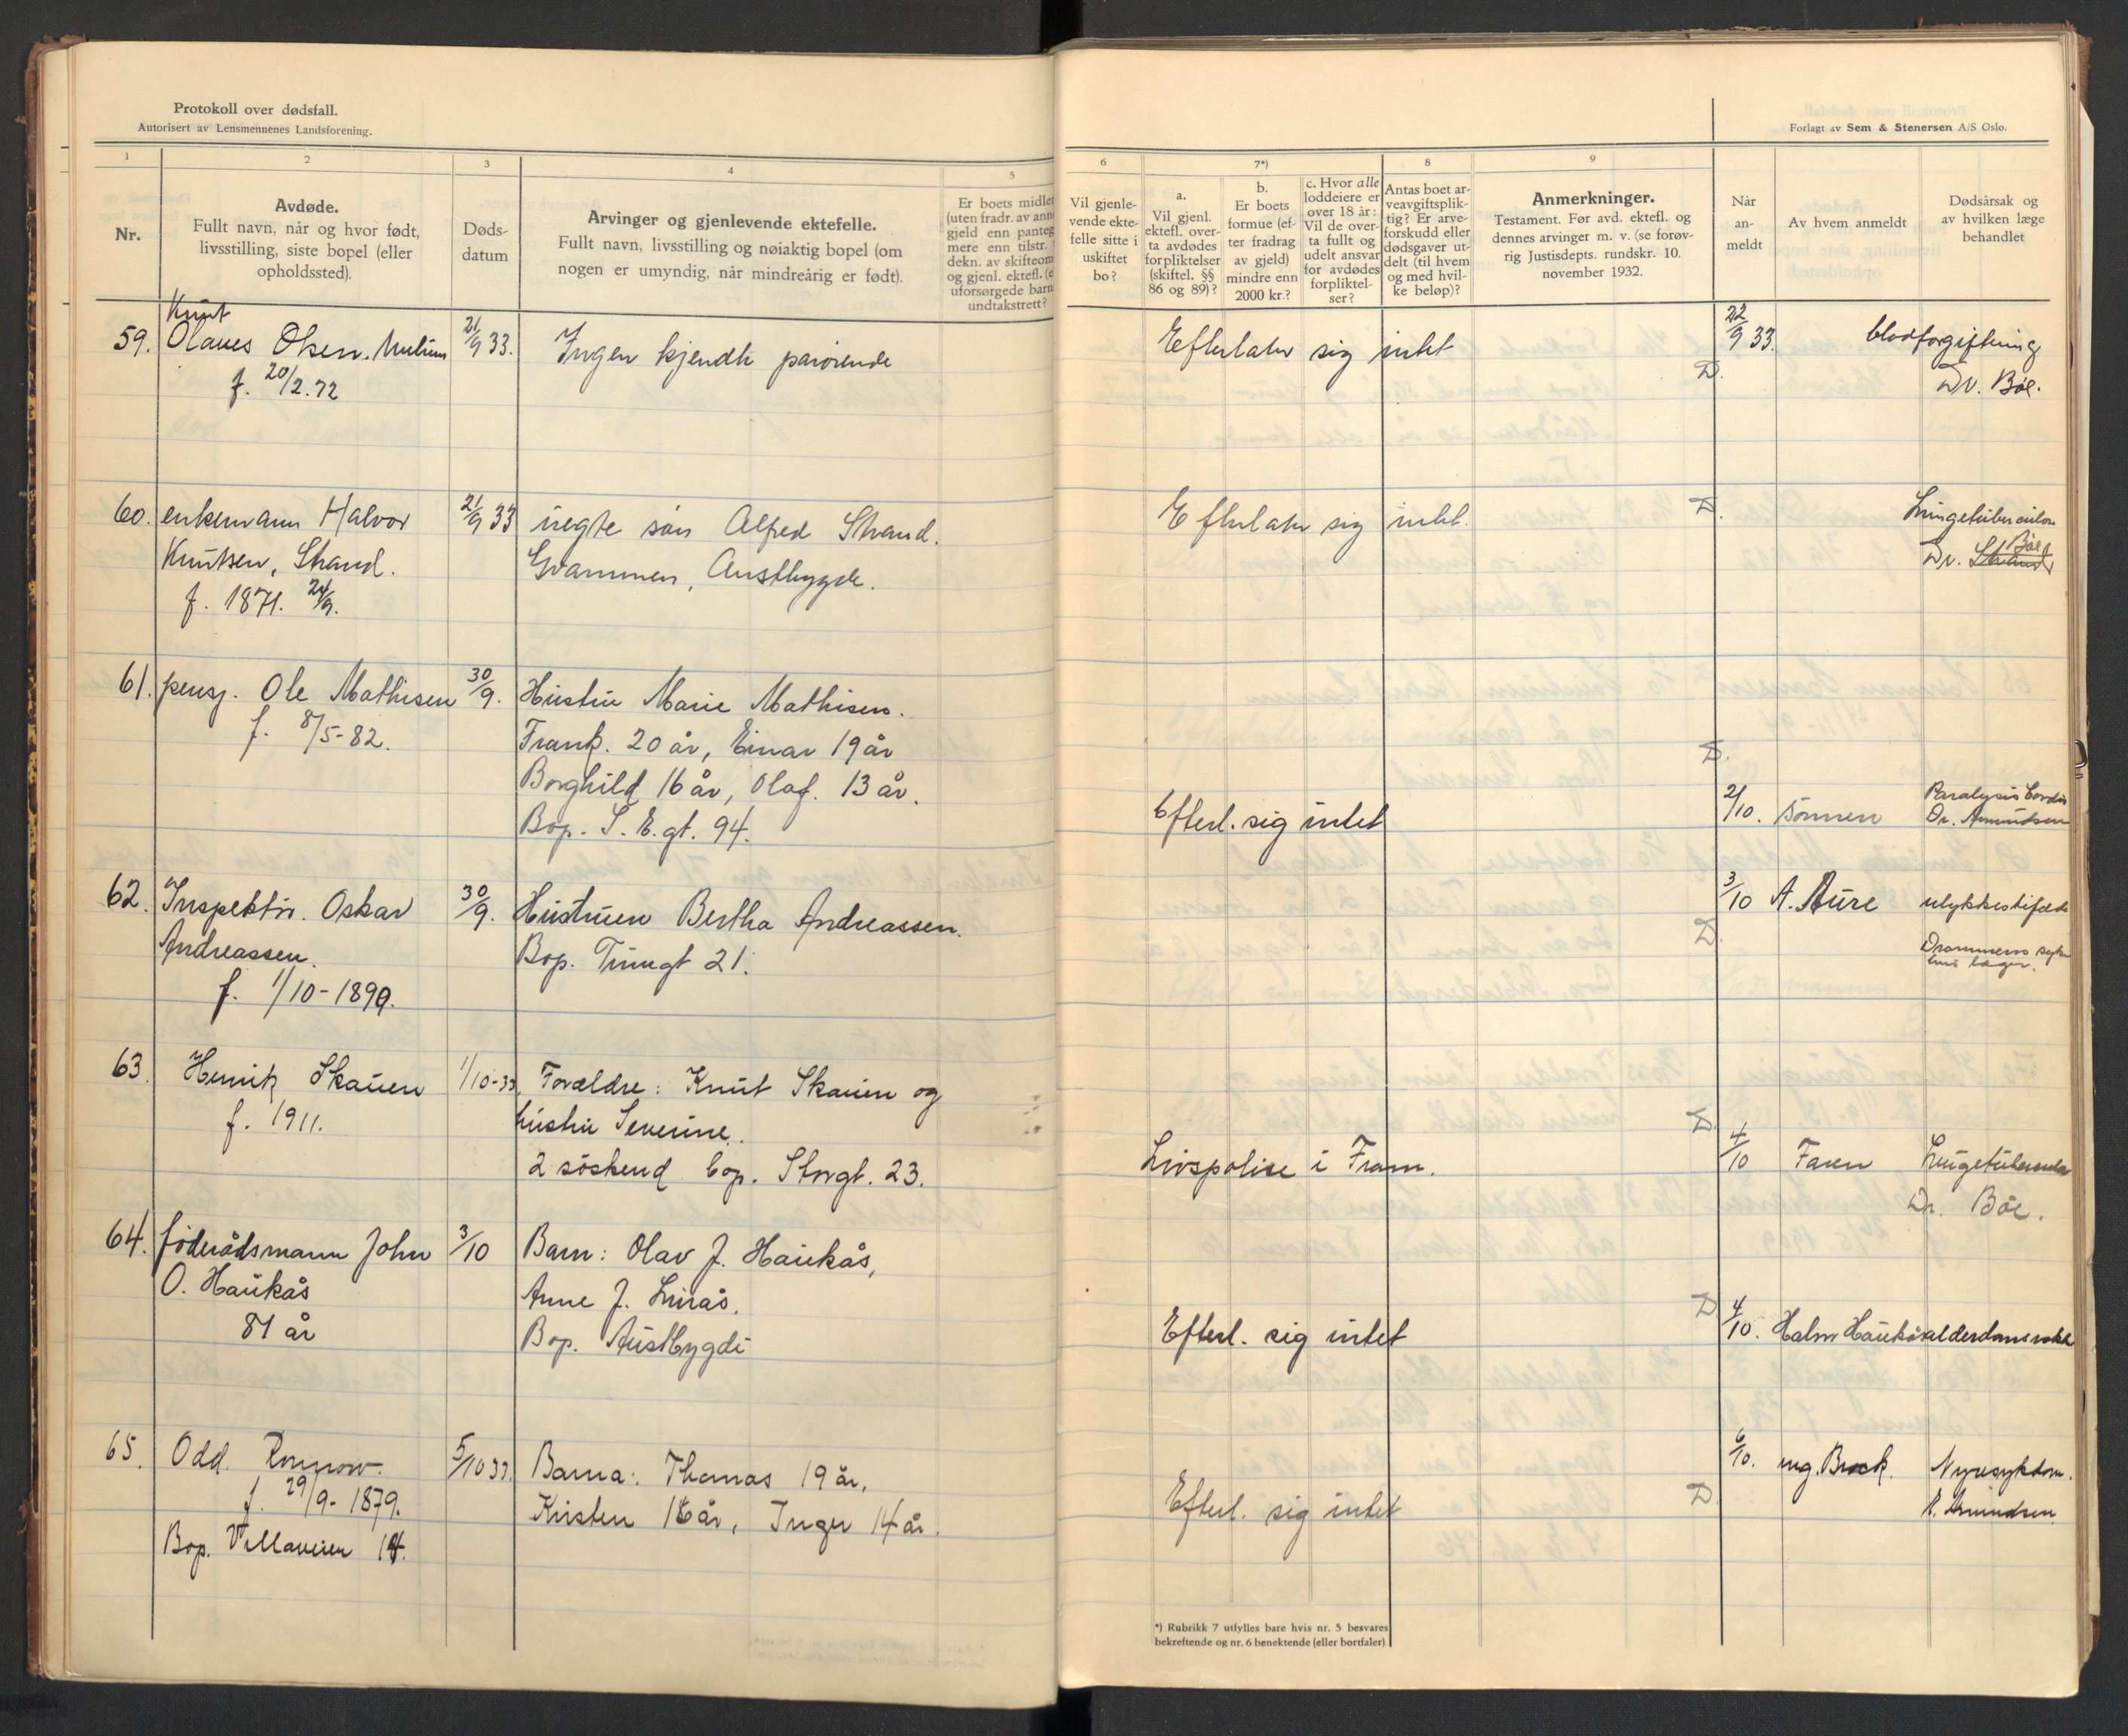 Protokoll over dødsfall.
Autorisert av Lensmennenes Landsforening.
Forlagt av Sem & Stenersen A/S Oslo.
1
2
3
4
5
6
7*)
8
9
Nr.
Avdøde.
Fullt navn, når og hvor født,
livsstilling, siste bopel (eller
opholdssted).
Døds-
datum
Arvinger og gjenlevende ektefelle.
Fullt navn, livsstilling og nøiaktig bopel (om
nogen er umyndig, når mindreårig er født).
Er boets midler
(uten fradr. av ann
gjeld enn panteg
mere enn tilstr.
dekn. av skifteom
og gjenl. ektef. (e
uforsørgede barn
undtakstrett?
Vil gjenle-
vende ekte-
felle sitte i
uskiftet
bo?
a.
Vil gjenl.
ektefl. over-
ta avdødes
forpliktelser
(skiftel. §§
86 og 89)?
b.
Er boets
formue (ef-
ter fradrag
av gjeld)
mindre enn
2000 kr.?
c. Hvor alle
loddeiere er
over 18 år:
Vil de over-
ta fullt og
udelt ansvar
for avdødes
forpliktel-
ser?
Antas boet ar-
veavgiftsplik-
tig? Er arve-
forskudd eller
dødsgaver ut-
delt (til hvem
og med hvil-
ke beløp)?
Anmerkninger.
Testament. Før avd. ektefl. og
dennes arvinger m. v. (se forøv-
rig Justisdepts. rundskr. 10.
november 1932.
Når
an-
meldt
Av hvem anmeldt
Dødsårsak og
av hvilken læge
behandlet
Knut
59. Olaves Olsen. 21/9 33. Ingen kjendte pårörende Efterlater sig intet 22/9 33. blodforgiftning
f. 20/2.72 D. Dr. Böe.
60. enkemann Halvor 21/9 33 uegte sön Alfred Strand. Efterlater sig intet. D. Lungetuberculose
Knutsen, Strand. Gvammen, Austbygde. Dr. Strand Böe
f. 1871. 24/9.
61. pensj. Ole Mathisen 30/9. Hustru Marie Mathisen.
f. 8/5-82. Frank. 20 år, Einar 19 år D.
Borghild 16 år, Olaf. 13 år.
Bop. S. E. gt. 94. Efterl. sig intet 2/10. sönnen Paralysis Cordis
Dr. Amundsen
62. Inspektör. Oskar 30/9. Hustruen Bertha Andreassen. 3/10 A. Aure ulykkestifælde
Andreassen. Bop. Tinngt 21. D. Drammens syke
hus læger.
f. 1/10-1899.
63. Henrik Skauen 1/10-33. Forældre: Knut Skauen og
f. 1911. hustru Severine. D.
2 söskend bop. Storgt. 23. Livspolise i Fram. 4/10 Faren Lungetuberculose
Dr. Böe.
64. föderådsmann John 3/10 Barn: Olav J. Haukås,
O. Haukås Anne J. Luraås.
81 år Bop. Austbygdi Efterl. sig intet D 4/10. Halvor Haukås alderdomssvakhet
65. Odd. 5/10 33. Barna: Thomas 19 år, 6/10. ing. Brock. Nyresykdom.
f. 29/9-1879. Kirsten 16 år, Inger 14 år. Efterl. sig intet D. Amundsen.
Bop. Villaveien 14.
*) Rubrikk 7 utfylles bare hvis nr. 5 besvares
bekreftende og nr. 6 benektende (eller bortfaler)